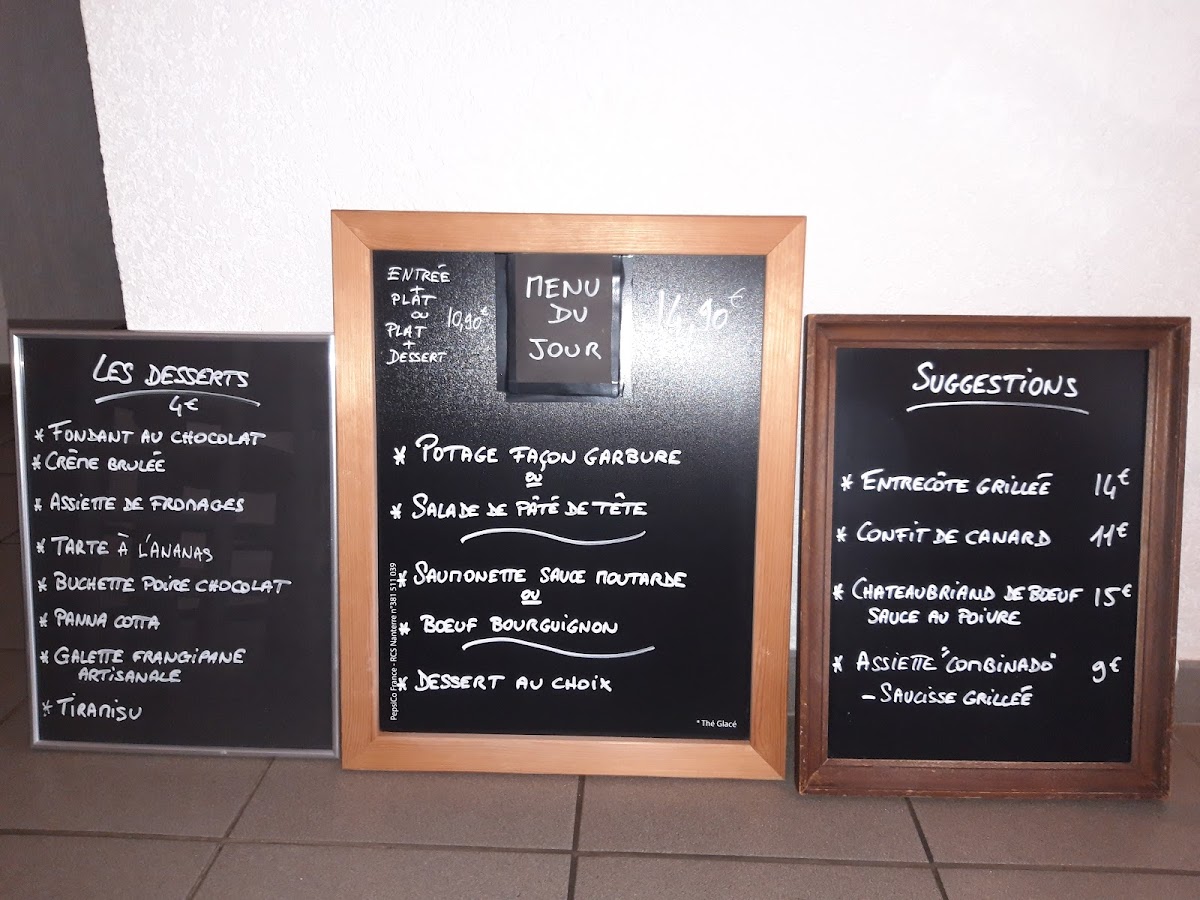 LES DESSERTS
4€
* FONDANT AU CHOCOLAT
* CRÈME BRULÉE
* ASSIETTE DE FROMAGES
* TARTE À L'ANANAS
* BUCHETTE POIRE CHOCOLAT
* PANNA COTTA
* GALETTE FRANGIPANE
ARTISANALE
* TIRAMISU
ENTRÉE
+
PLAT
OU
PLAT
+
DESSERT
10,90€
MENU
DU
JOUR
14,90€
* POTAGE FAÇON GARBURE
OU
* SALADE DE PÂTÉ DE TÊTE
* SAUMONETTE SAUCE MOUTARDE
OU
* BŒUF BOURGUIGNON
* DESSERT AU CHOIX
PepsiCo France - RCS Nanterre n°381 511 039
* Thé Glacé
SUGGESTIONS
* ENTRECÔTE GRILLÉE 14€
* CONFIT DE CANARD 11€
* CHATEAUBRIAND DE BŒUF 15€
SAUCE AU POIVRE
* ASSIETTE "COMBINADO" 9€
- SAUCISSE GRILLÉE